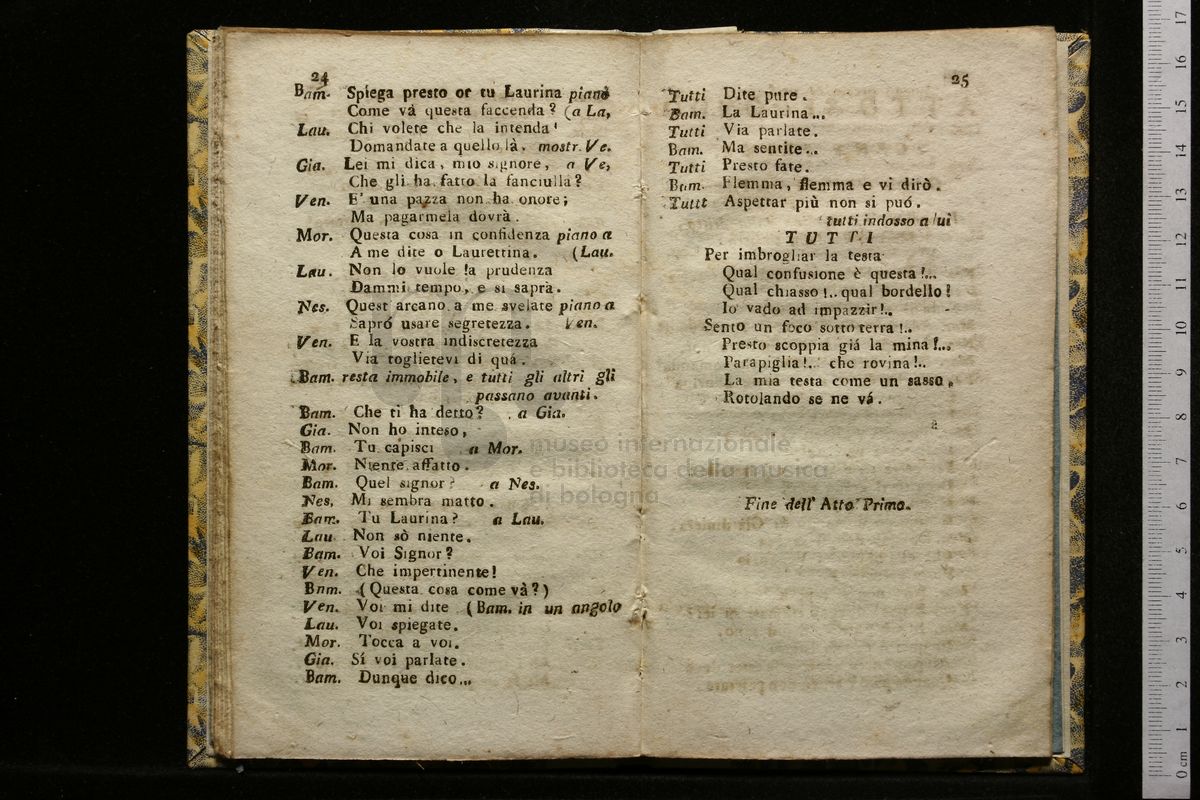 24
Bam. Spiega presto or tu Laurina piano
Come vá questa faccenda? (a La,
Lau. Chi volete che la intenda'
Domandate a quello là. mostr. Ve.
Gia. Lei mi dica, mio signore, a Ve,
Che gli ha fatto la fanciulla?
Ven. E' una pazza non ha onore;
Ma pagarmela dovrà.
Mor. Questa cosa in confidenza piano a
A me dite o Laurettina. (Lau.
Lau. Non lo vuole la prudenza
Dammi tempo, e si saprà.
Nes. Quest' arcano a me svelate piano a
Sapró usare segretezza. Ven.
Ven. E la vostra indiscretezza
Via toglietevi di quá.
Bam. resta immobile, e tutti gli altri gli
passano avanti.
Bam. Che ti ha detto? a Gia.
Gia. Non ho inteso,
Bam. Tu capisci a Mor.
Mor. Niente affatto.
Bam. Quel signor? a Nes.
Nes. Mi sembra matto.
Bam. Tu Laurina? a Lau.
Lau Non sò niente.
Bam. Voi Signor?
Ven. Che impertinente!
Bnm. (Questa cosa come và?)
Ven. Voi mi dite (Bam. in un angolo
Lau. Voi spiegate.
Mor. Tocca a voi.
Gia. Sí voi parlate.
Bam. Dunque dico...
25
Tutti Dite pure.
Bam. La Laurina...
Tutti Via parlate.
Bam. Ma sentite...
Tutti Presto fate.
Bam. Flemma, flemma e vi dirò.
Tuttt Aspettar più non si puó.
tutti indosso a lui
TUTTI
Per imbrogliar la testa
Qual confusione è questa!...
Qual chiasso!.. qual bordello!
Io vado ad impazzir!..
Sento un foco sotto terra!..
Presto scoppia giá la mina!...
Parapiglia!.. che rovina!..
La mia testa come un sasso,
Rotolando se ne vá.
à
Fine dell' Atto Primo.
museo internazionale
e biblioteca della musica
di bologna
0 cm 1 2 3 4 5 6 7 8 9 10 11 12 13 14 15 16 17